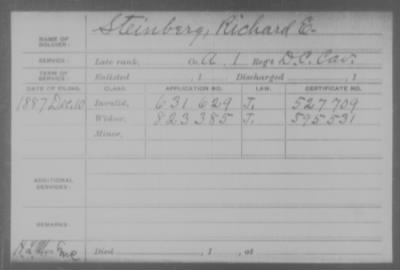 NAME OF SOLDIER: Steinberg, Richard E.
SERVICE: Late rank, Co. A, 1 Reg't D.C. Cav.
TERM OF SERVICE: Enlisted , 1 Discharged , 1
DATE OF FILING. CLASS. APPLICATION NO. LAW. CERTIFICATE NO.
1887 Dec. 10 Invalid, 631 629 J. 527 709
Widow, 823 385 J. 595 531
Minor,
ADDITIONAL SERVICES:
REMARKS:
Died , 1 , at